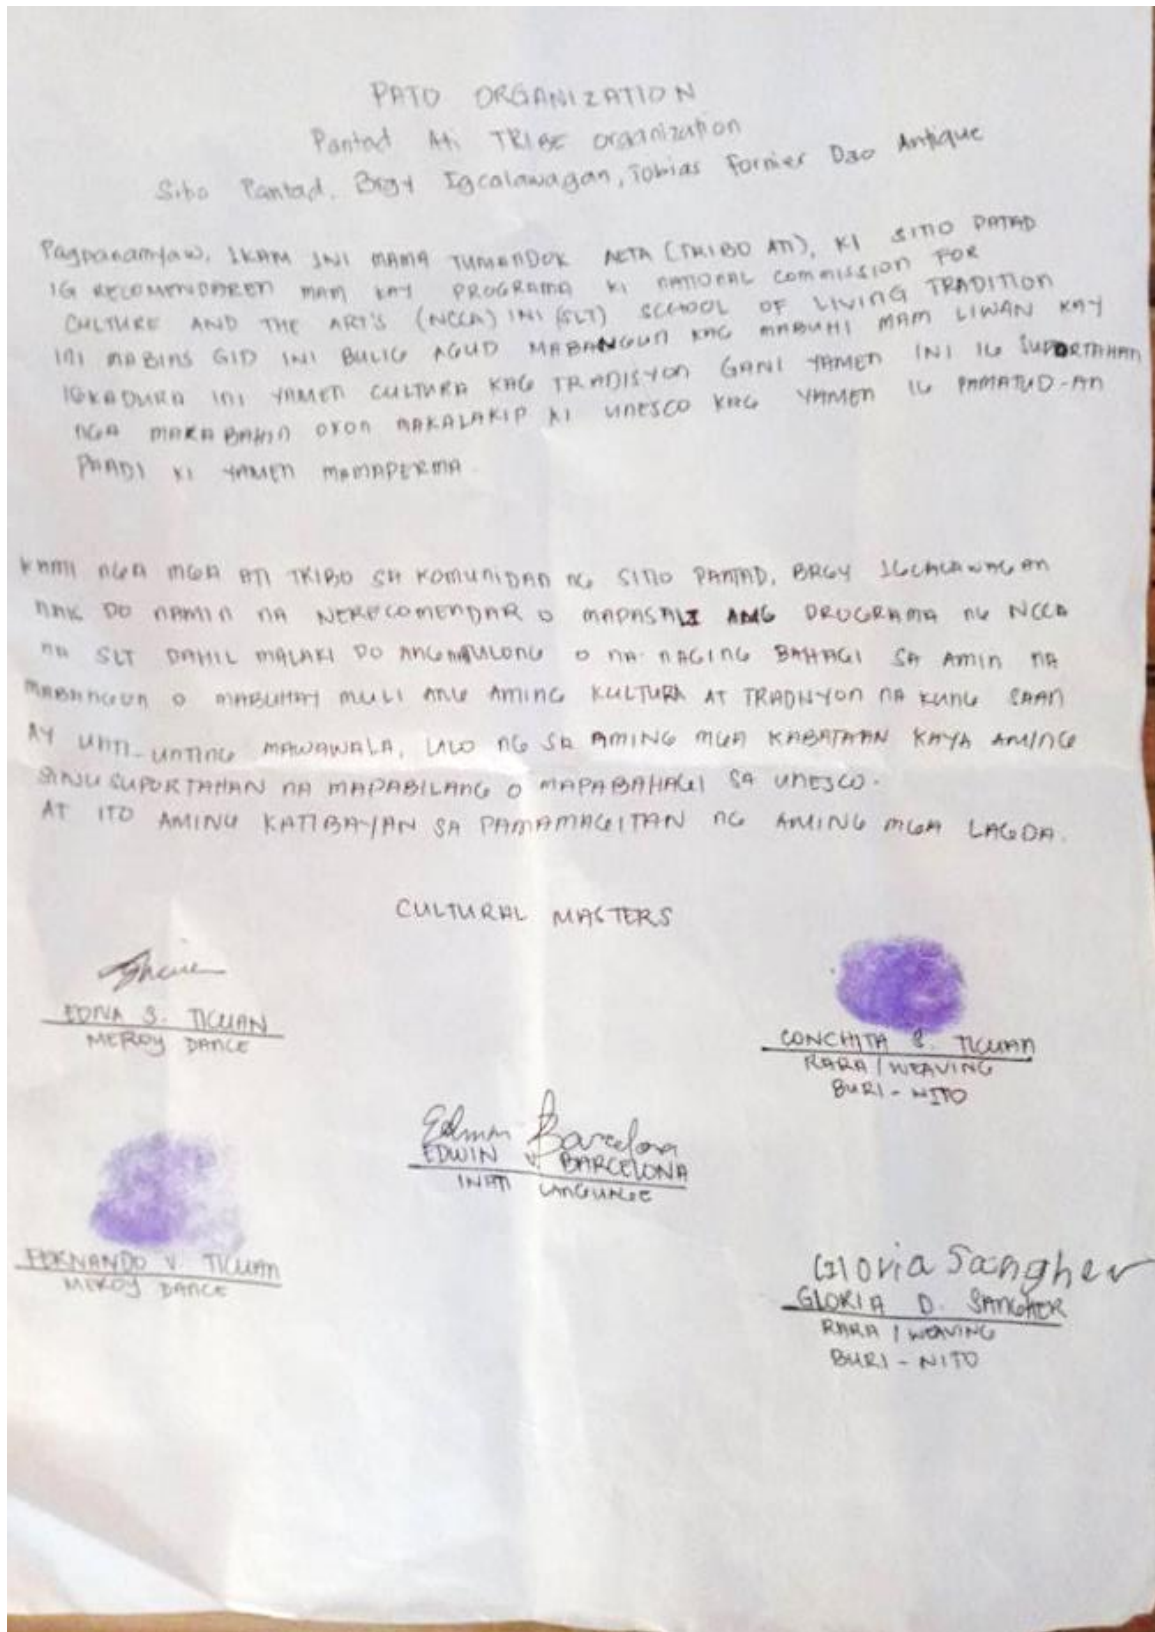 PATO ORGANIZATION
Pantad Ati TRIBE organization
Sitio Pantad, Brgy Igcalawagan, Tobias Fornier Dao Antique
Pagpanamyaw, IKAM INI MAMA TUMANDOK AETA (TRIBO ATI), KI SITIO PATAD
IG RECOMENDAREN MAM KAY PROGRAMA KI NATIONAL COMMISSION FOR
CULTURE AND THE ART'S (NCCA) INI (SLT) SCHOOL OF LIVING TRADITION
INI MABIAS GID INI BULIG AGUD MABANGUN KAG MABUHI MAM LIWAN KAY
IGKADURA INI YAMEN CULTURA KAG TRADISYON GANI YAMEN INI IG SUPORTAHAN
NGA MAKABAHIN OKON MAKALAKIP KI UNESCO KAG YAMEN IG PAMATUD-AN
PAADI KI YAMEN MAMAPERMA.
KAMI NGA MGA ATI TRIBO SA KOMUNIDAD NG SITIO PANTAD, BRGY IGCALAWAGAN
NAK DO NAMIN NA NERECOMENDAR O MAPASALI ANG PROGRAMA NG NCCA
NA SLT DAHIL MALAKI DO ANG NATULONG O NA NAGING BAHAGI SA AMIN NA
MABANGUN O MABUHAY MULI ANG AMING KULTURA AT TRADISYON NA KUNG SAAN
AY UNTI-UNTING MAWAWALA, LALO NG SA AMING MGA KABATAAN KAYA AMING
SINUSUPORTAHAN NA MAPABILANG O MAPABAHAGI SA UNESCO.
AT ITO AMING KATIBAYAN SA PAMAMAGITAN NG AMING MGA LAGDA.
CULTURAL MASTERS
EDNA S. TICUAN
MEROY DANCE
CONCHITA S. TICUAN
RARA / WEAVING
BURI - NITO
Edwin Barcelona
EDWIN V. BARCELONA
INATI LANGUAGE
FERNANDO V. TICUAN
MEROY DANCE
Gloria Sangher
GLORIA D. SANGHER
RARA / WEAVING
BURI - NITO